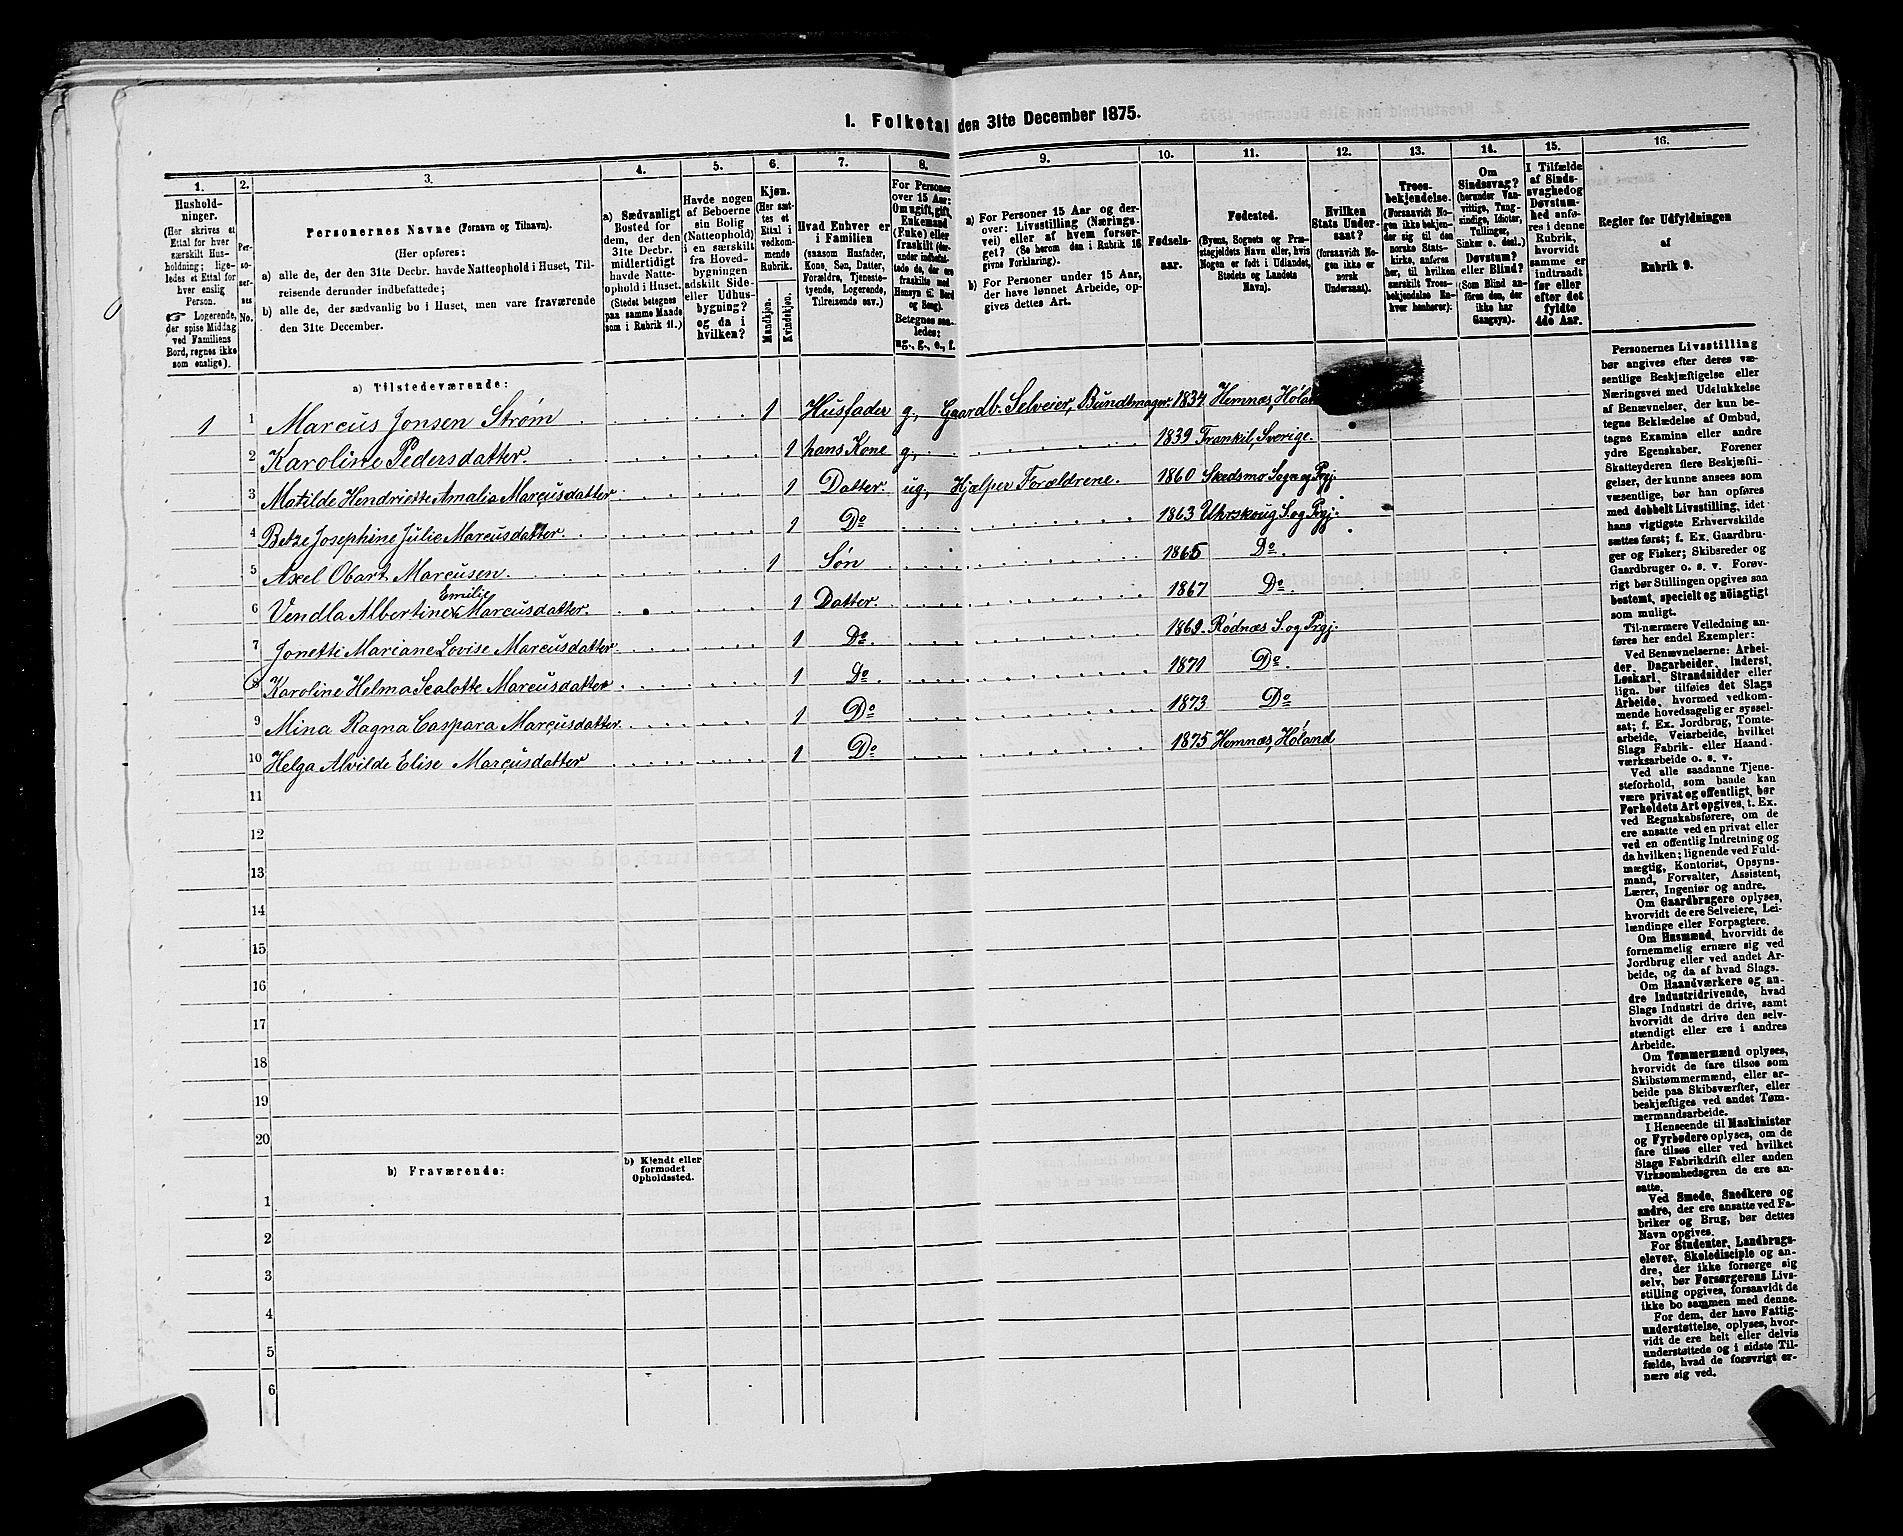 1. Folketal den 31te December 1875.
1.
Hushold-
ninger.
(Her skrives et
Ettal for hver
særskilt Hus-
holdning; lige-
ledes et Ettal for
hver enslig
Person.
☞ Logerende,
der spise Middag
ved Familiens
Bord, regnes ikke
som enslige).
2.
Per-
so-
ner-
nes
No.
3.
Personernes Navne (Fornavn og Tilnavn).
(Her opføres:
a) alle de, der den 31te Decbr. havde Natteophold i Huset, Til-
reisende derunder indbefattede;
b) alle de, der sædvanlig bo i Huset, men vare fraværende
den 31te December.
4.
a) Sædvanligt
Bosted for
dem, der den
31te Decbr.
midlertidigt
havde Natte-
ophold i Huset.
(Stedet betegnes
paa samme Maade
som i Rubrik 11.)
5.
Havde nogen
af Beboerne
sin Bolig
(Natteophold)
en særskilt
fra Hoved-
bygningen
adskilt Side-
eller Udhus-
bygning?
og da i
hvilken?
6.
Kjøn.
(Her sæt-
tes et
Ettal i
vedkom-
mende
Rubrik.
Mandkjøn.
Kvindekjøn.
7.
Hvad Enhver er
i Familien
(saasom Husfader,
Kone, Søn, Datter,
Forældre, Tjeneste-
tyende, Logerende,
Tilreisende osv.)
8.
For Personer
over 15 Aar:
Om ugift, gift,
Enkemand
(Enke) eller
fraskilt (der-
under indbefat-
tede de, der
ere fraskilte med
Hensyn til Bord
og Seng).
Betegnes saa-
ledes:
ug., g., e., f.
9.
a) For Personer 15 Aar og der-
over: Livsstilling (Nærings-
vei) eller af hvem forsør-
get? (Se herom den i Rubrik 16
givne Forklaring).
b) For Personer under 15 Aar,
der have lønnet Arbeide, op-
gives dettes Art.
10.
Fødsels-
aar.
11.
Fødested.
(Byens, Sognets og Præ-
stegjeldets Navn eller, hvis
Nogen er født i Udlandet,
Stedets og Landets
Navn).
12.
Hvilken
Stats Under-
saat?
(forsaavidt No-
gen ikke er
norsk
Undersaat).
13.
Troes-
bekjendelse.
(Forsaavidt No-
gen ikke bekjen-
der sig til den
norske Stats-
kirke, anføres
her, til hvilken
særskilt Troes-
bekjendelse En-
hver henhører).
14.
Om
Sindssvag?
(herunder Van-
vittige, Tung-
sindige, Idioter,
Tullinger,
Sinker o. desl.)
Døvstum?
eller Blind?
(Som Blind an-
føres den, der
ikke har
Gangsyn).
15.
I Tilfælde
af Sinds-
svaghed og
Døvstum-
hed anfø-
res i denne
Rubrik,
hvorvidt
samme er
indtraadt
før eller
efter det
fyldte
4de Aar.
16.
Regler for Udfyldningen
af
Rubrik 9.
a) Tilstedeværende:
1 1 Marcus Jonsen Strøm 1 Husfader g, Gaardb. Selveier, Bundtmager. 1834 Hemnæs, Høland
2 Karoline Pedersdatter. 1 hans Kone g, 1839 Frankil, Sverige.
3 Matilde Hendriette Amalia Marcusdatter 1 Datter ug, Hjelper Forældrene. 1860 Skedsmo Sogn og Prgj.
4 Betze Josephine Julie Marcusdatter. 1 Do 1863 Uhrskoug S. og Prgj.
5 Axel Obart Marcusen. 1 Søn 1865 Do.
Emilie
6 Vendla Albertine Marcusdatter. 1 Datter. 1867 Do.
7 Jonetti Mariane Lovise Marcusdatter. 1 Do. 1869. Rødnæs S. og Prgj.
8 Karoline Helma Scalotte Marcusdatter 1 Do. 1871 Do.
9 Mina Ragna Caspara Marcusdatter. 1 Do 1873 Do
10 Helga Alvilde Elise Marcusdatter 1 Do 1875 Hemnæs, Høland
11
12
13
14
15
16
17
18
19
20
b) Fraværende:
b) Kjendt eller
formodet
Opholdssted.
1
2
3
4
5
6
Personernes Livsstilling
bør angives efter deres væ-
sentlige Beskjæftigelse eller
Næringsvei med Udelukkelse
af Benævnelser, der kun be-
tegne Beklædelse af Ombud,
tagne Examina eller andre
ydre Egenskaber. Forener
Skatteyderen flere Beskjæfti-
gelser, der kunne ansees som
væsentlige, bør han opføres
med dobbelt Livsstilling, idet
hans vigtigste Erhvervskilde
sættes først; f. Ex. Gaardbru-
ger og Fisker; Skibsreder og
Gaardbruger o. s. v. Forøv-
rigt bør Stillingen opgives saa
bestemt, specielt og nøiagtigt
som muligt.
Til nærmere Veiledning an-
føres her endel Exempler:
Ved Benævnelserne: Arbei-
der, Dagarbeider, Inderst,
Løskarl, Strandsidder eller
lign. bør tilføies det Slags
Arbeide, hvormed vedkom-
mende hovedsagelig er syssel-
sat; f. Ex. Jordbrug, Tomte-
arbeide, Veiarbeide, hvilket
Slags Fabrik- eller Haand-
værksarbeide o. s. v.
Ved alle saadanne Tjene-
steforhold, som baade kan
være privat og offentligt, bør
Forholdets Art opgives, t. Ex.
ved Regnskabsførere, om de
ere ansatte ved en privat eller
ved en offentlig Indretning og
da hvilken; lignende ved Fuld-
mægtig, Kontorist, Opsyns-
mand, Forvalter, Assistent,
Lærer, Ingeniør og andre.
Om Gaardbrugere oplyses,
hvorvidt de ere Selveiere, Lei-
lændinge eller Forpagtere.
Om Husmænd, hvorvidt de
fornemmelig ernære sig ved
Jordbrug eller ved andet Ar-
beide, og da af hvad Slags.
Om Haandværkere og an-
dre Industridrivende, hvad
Slags Industri de drive, samt
hvorvidt de drive den selv-
stændigt eller ere i andres
Arbeide.
Om Tømmermænd oplyses,
hvorvidt de fare tilsøs som
Skibstømmermænd, eller ar-
beide paa Skibsværfter, eller
beskjæftiges ved andet Tøm-
mermandsarbeide.
I Henseende til Maskinister
og Fyrbødere oplyses, om de
fare tilsøs eller ved hvilket
Slags Fabrikdrift eller anden
Virksomhedsgren de ere an-
satte.
Ved Smede, Snedkere og
andre, der ere ansatte ved Fa-
briker og Brug, bør dettes
Navn opgives.
For Studenter, Landbrugs-
elever, Skoledisciple og an-
dre, der ikke forsørge sig
selv, bør Forsørgerens Livs-
stilling opgives, forsaavidt de
ikke bo sammen med denne.
For dem, der have Fattig-
understøttelse, oplyses, hvor-
vidt de ere helt eller delvis
understøttede og i sidste Til-
fælde, hvad de forøvrigt er-
nære sig ved.